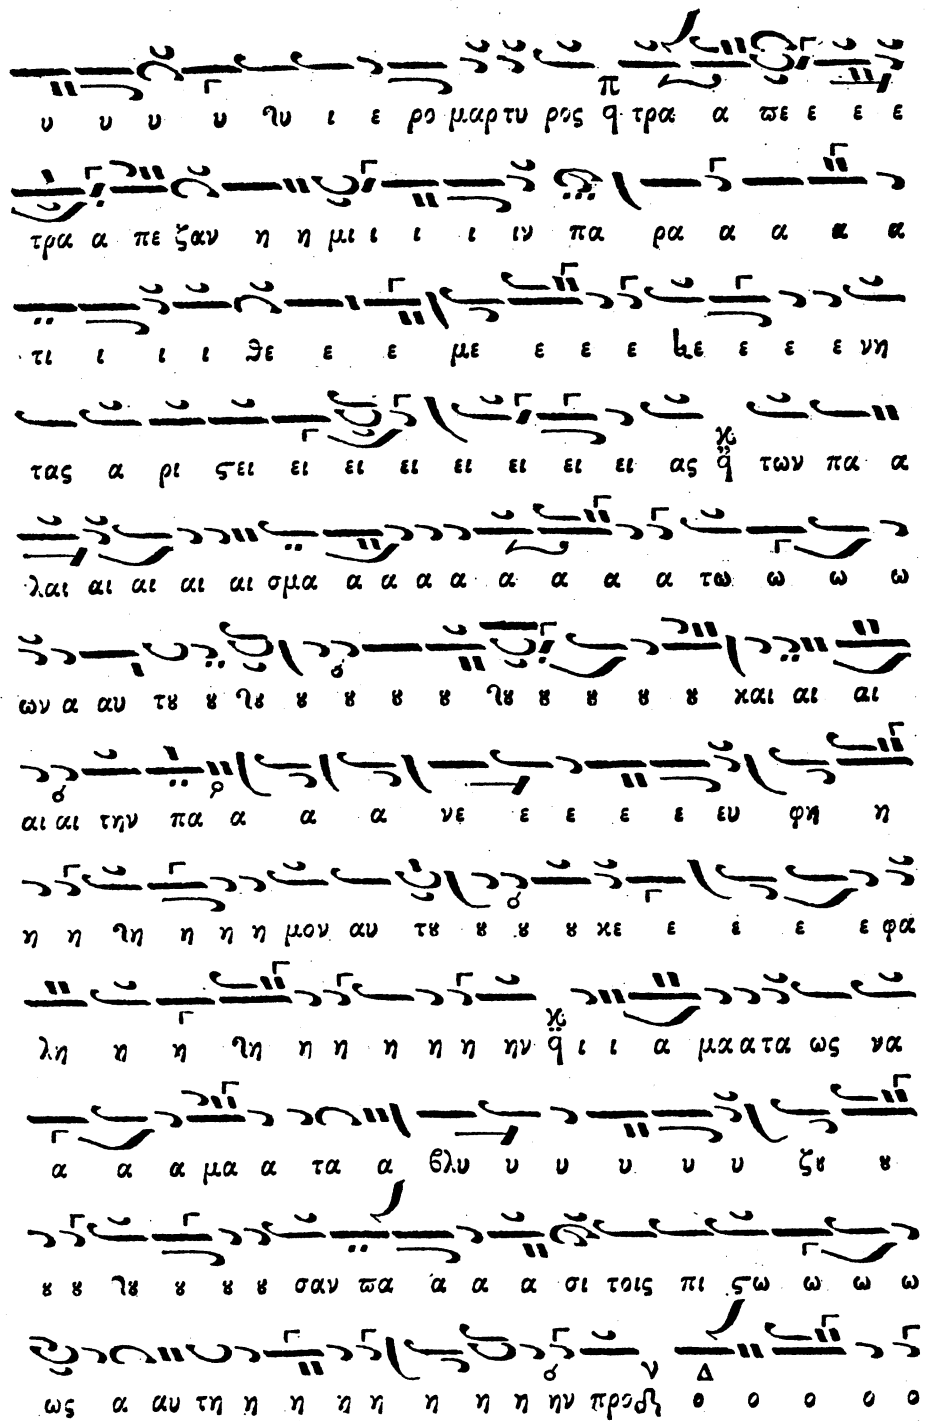 υ υ υ υ ϡυ ι ε ρο μαρτυ ρος π q τρα α ϖε ε ε ε
τρα α πε ζαν η η μι ι ι ι ιν πα ρα α α α α
τι ι ι ι ϑε ε ε με ε ε ε ε ε ε νη
τας α ρι ϛει ει ει ει ει ει ει ει ας ϰ q των πα α
λαι αι αι αι αι σμα α α α α α α α α τω ω ω ω
ων α αυ τȣ ȣ ϡȣ ȣ ȣ ȣ ȣ ϡȣ ȣ ȣ ȣ ȣ και αι αι
αι αι την πα α α α νε ε ε ε ε ευ φη η
η η ϡη η η η μον αυ τȣ ȣ ȣ ȣ κε ε ε ε ε φα
λη η η ϡη η η η η η ην ϰ q ι ι α μα α τα ως να
α α α μα α τα α βλυ υ υ υ υ υ ζȣ ȣ
ȣ ȣ ϡȣ ȣ ȣ ȣ σαν ϖα α α α σι τοις πι ϛω ω ω ω
ως α αυ τη η η η η η η η ην προς ν Δ ο ο ο ο ο